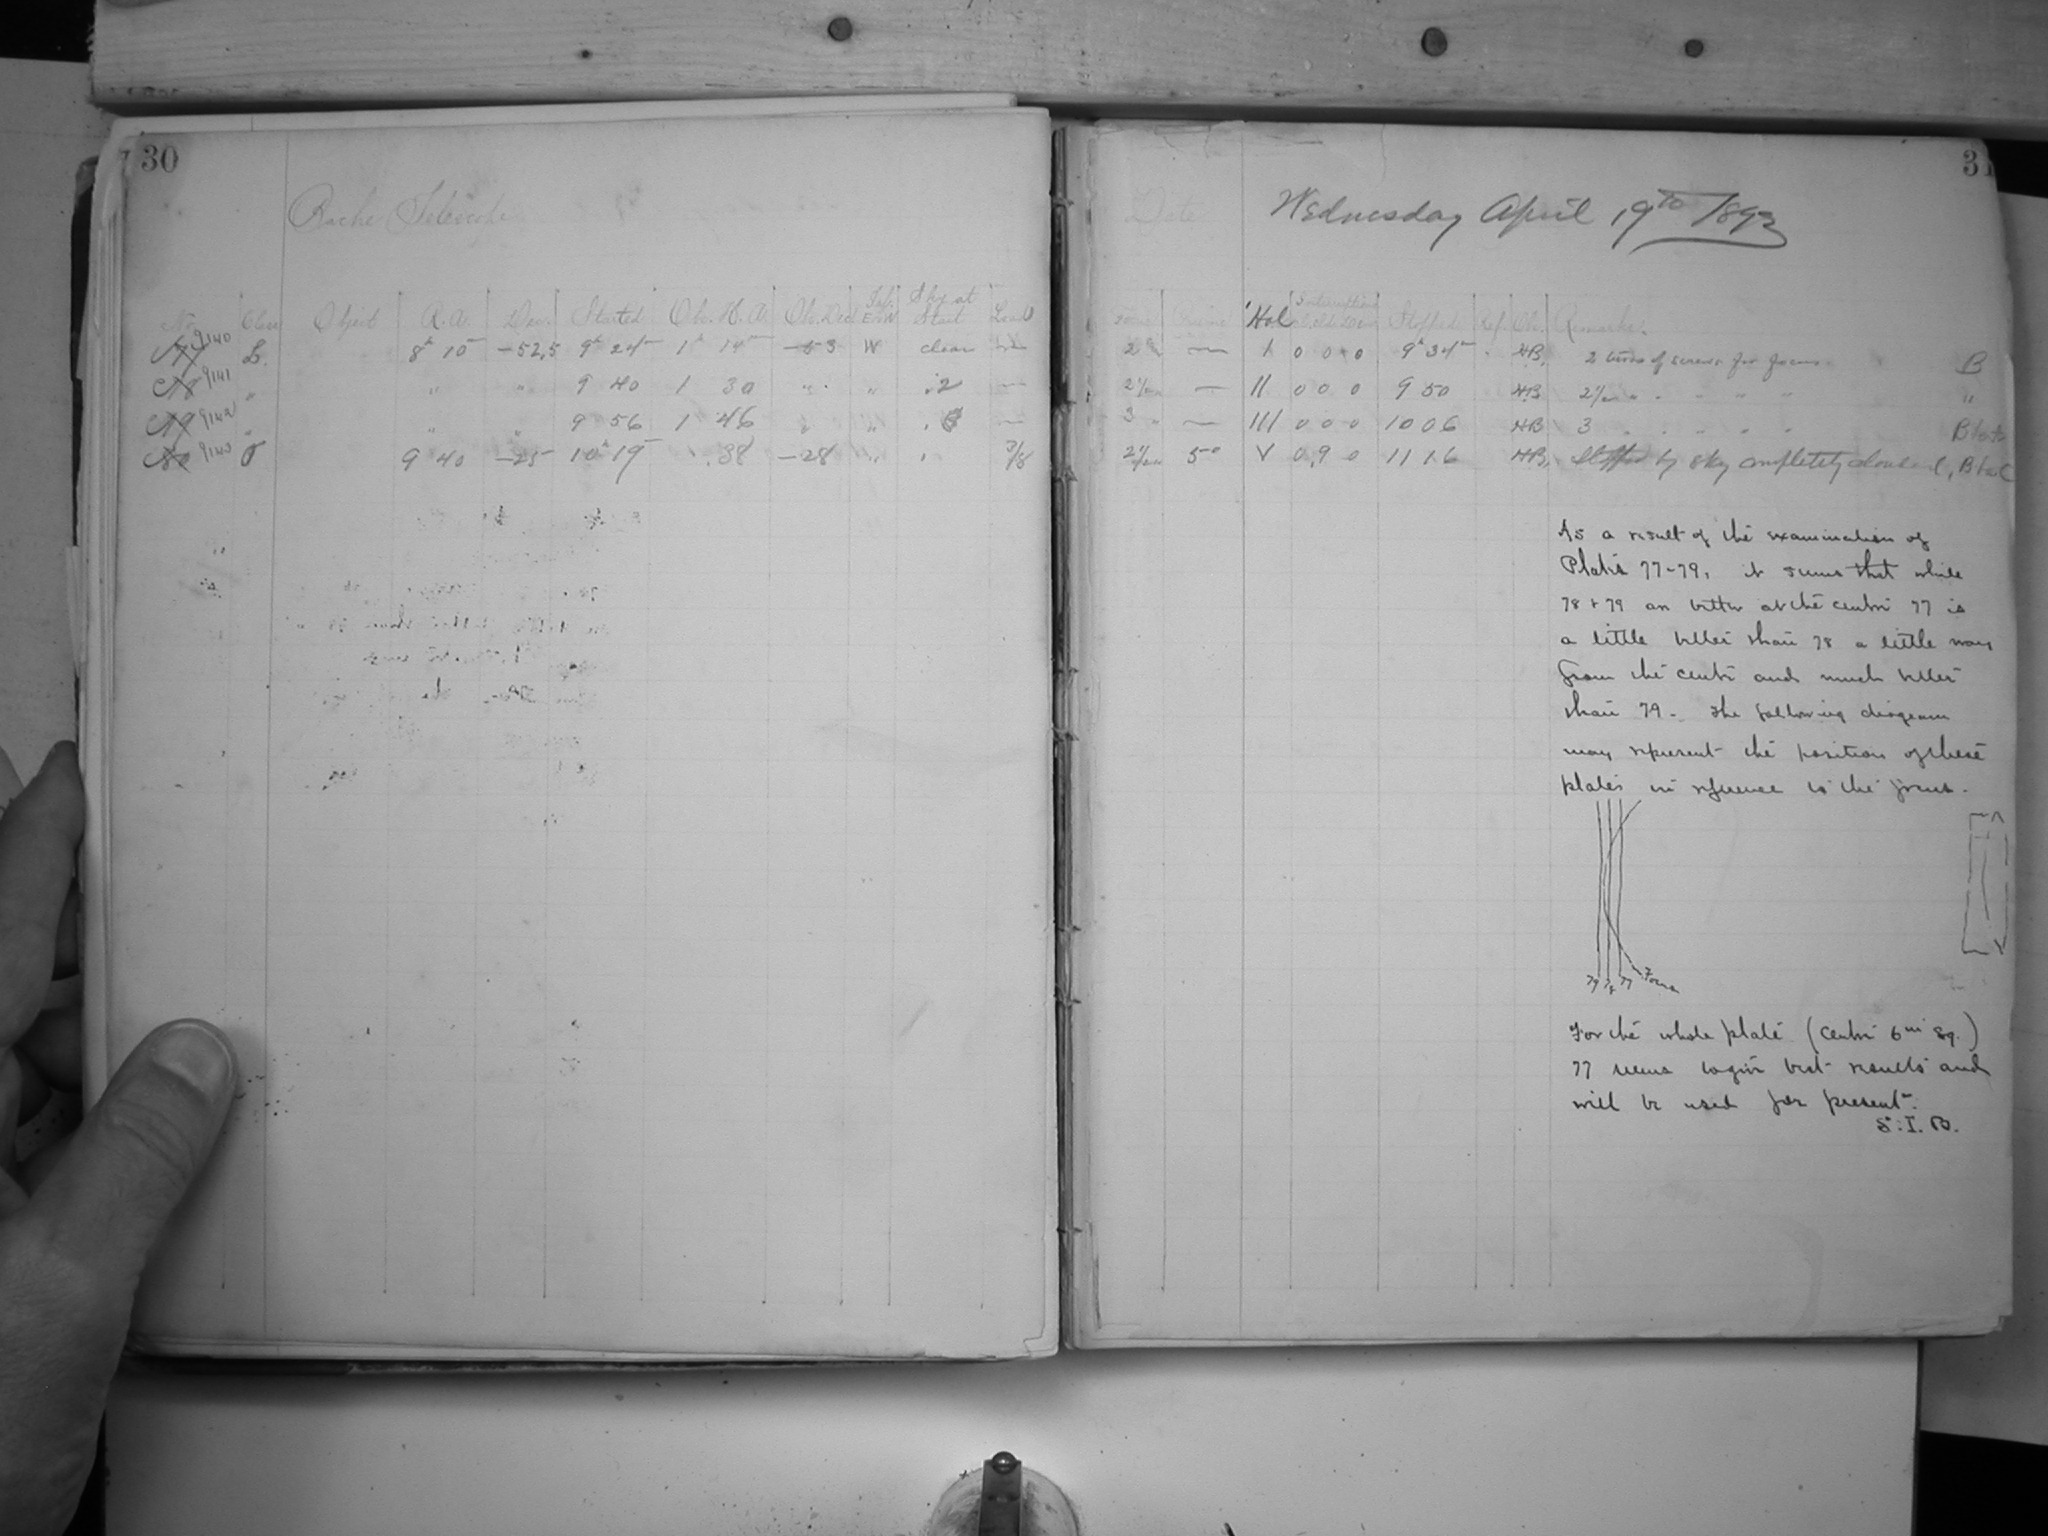 30
Bache Telescope
No. Class Object R.A. Dec. Started Obs. H.A. Obs. Dec. Tel. E or W Sky at Start
77 9140 L. 8h 10m -52,5 9h 24m 1h 14m -53 W clear
78 9141 " " " 9 40 1 30 " " "
79 9142 " " " 9 56 1 46 " " "
80 9143 9 40 -25 10h 19m .38 -28 " "
31
Date Wednesday April 19th 1893
Hol Stopped Obs. Remarks.
2 — I 0 0 0 9h 34m HB. 2 turns of screws for focus. B
2½ — II 0 0 0 9 50 HB 2½ " " " " "
3 " — III 0 0 0 10 06 HB 3 " " " "
2½ 50 V 0,9 0 11 16 HB. Stopped by sky completely
As a result of the examination of
Plates 77-79, it seems that while
78 & 79 are better at the centre 77 is
a little better than 78 a little way
from the centre and much better
than 79. The following diagram
may represent the position of these
plates in reference to the focus.
79 78 77 Focus
For the whole plate (centre 6in sq.)
77 seems to give best results and
will be used for present.
S. I. B.